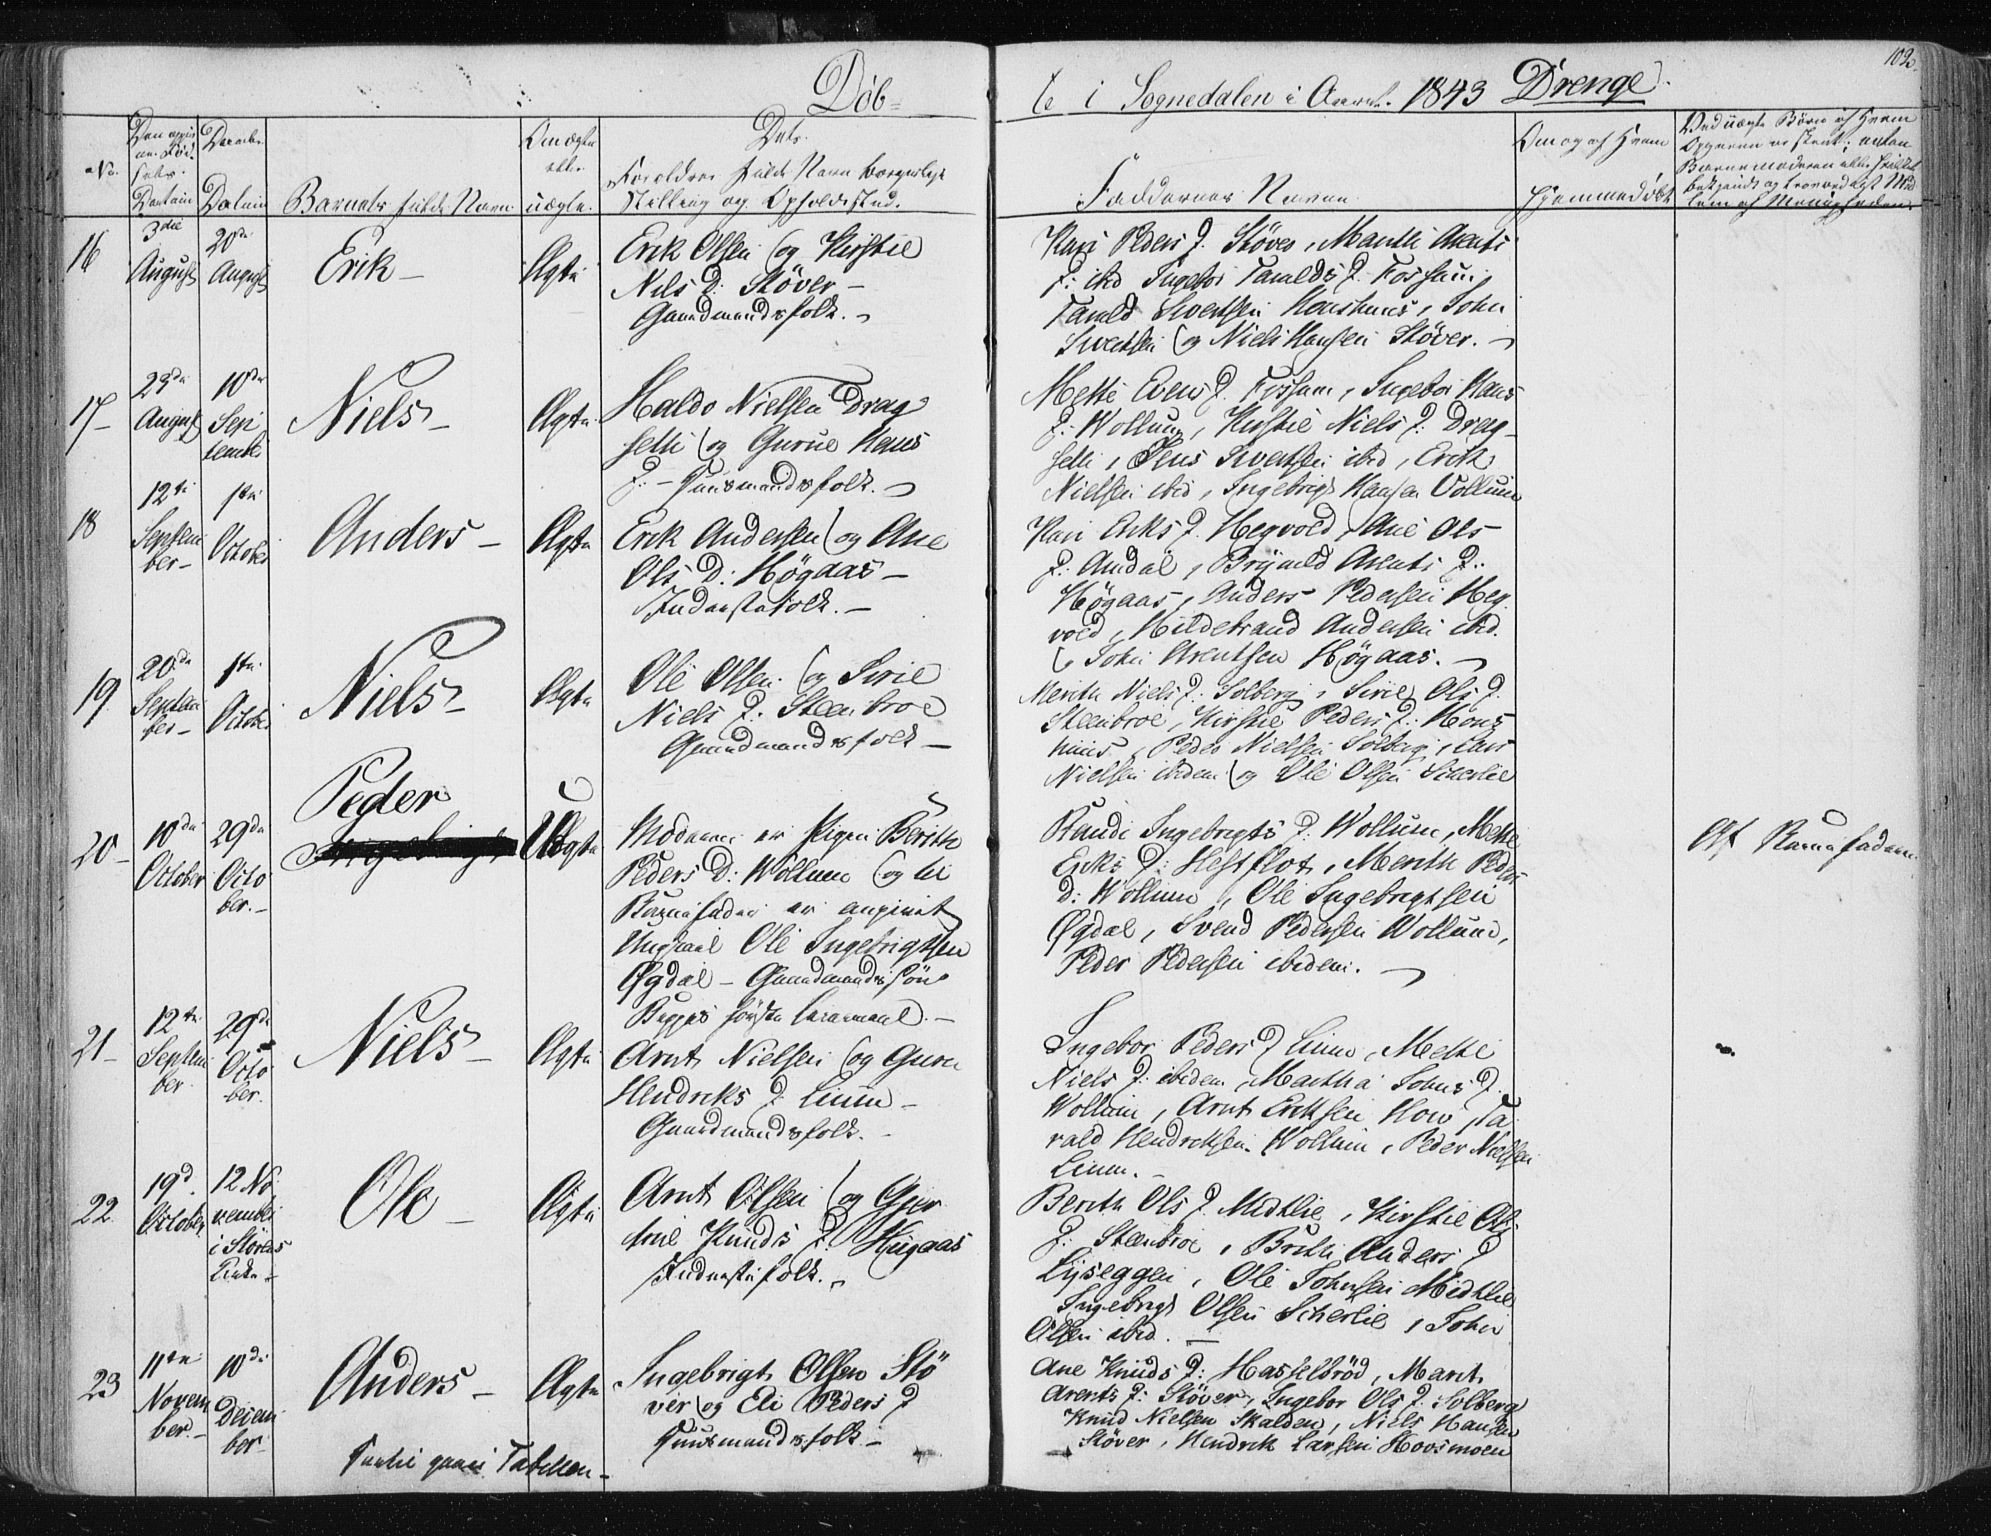 Døb=
te i Sognedalen i Aaret 1843 Drenge.
No.
Datum
Datum
Barnets fulde Navn
uægte.
Dets
Forældres fulde Navn borgerlige
Stilling og Opholdssted.
Faddernes Navne
Om og af Hvem
hjemmedøbt
16
3die
August
20de
August
Erik
Ægte
Erik Olsen og Kirstie
Nils D: Støver
Gaardmandsfolk.
Kari Peders D. Støver, Marith Arents
D: ibid Ingebor Taralds D. Fossum,
Tarald Sivertsen Haushuus, John
Sivertsen og Niels Hansen Støver.
17
23de
August
10de
Sep
tember
Niels
Ægte
Haldo Nielsen Drag
setli og Gurue Hans
D: Huusmandsfolk.
Mette Evens D. Fossum, Ingebor Hans
D: Wollum, Kirstie Niels D: Drag
setli, Jens Sivertsen ibid, Erik
Nielsen ibid, Ingebrigt Hansen Vollum
18
12te
Septem
ber
1ste
October
Anders
Ægte
Erik Andersen og Ane
Ols D: Høgaas
Inderstefolk.
Kari Eriks D. Hegvold, Ane Ols
D: Amdal, Brynild Arents D:
Høgaas, Anders Pedersen Heg
vold, Hildebrand Andersen ibid.
og John Arentsen Høgaas.
19
20de
Septem
ber
1ste
October
Niels
Ægte
Ole Olsen og Sirie
Niels D: Steenbroe
Gaardmandsfolk
Merith Niels D. Solberg, Sirie Ols D.
Steenbroe, Kirstie Peders D: Hous
huus, Peder Nielsen Solberg, Lars
Nielsen ibidem og Ole Olsen Scherlie
20
10de
October
29de
Octo
ber.
Peder
Uægte
Moderen er Pigen Berith
Peders D: Wollum og til
Barnefader er angivet
Ungkarl Ole Ingebrigtsen
Øgdal Gaardmandssøn
Begges første Leiermaal.
Randi Ingebrigts D. Wollum, Mette
Eriks D: Heftflot, Merith Peders
D: Wollum, Ole Ingebrigtsen
Øgdal, Svend Pedersen Wollum,
Peder Pedersen ibidem.
Af Barnefaderen
21
12te
Septem
ber
29de
Octo
ber.
Niels
Ægte
Arnt Nielsen og Guru
Hendriks D Lium
Gaardmandsfolk.
Ingebor Peders D Lium, Mette
Niels D: ibidem, Martha Johns D.
Wollum, Arnt Eriksen How, Ta
rald Hendriksen Wollum, Peder Nielsen
Lium.
22
19d.
October
12 No
vember
i Størens
Kirke
Ole
Ægte
Arnt Olsen og Gjer
true Knuds D: Hugaas
Inderstefolk.
Berith Ols D Midtlie, Kirstie Ols
D: Steenbroe, Brithe Anders D
Lyseggen, Ole Johnsen Midtlie
Ingebrigt Olsen Scherlie, John
Olsen ibid.
23
11te
Novem
ber.
10de
Decem
ber
Anders
Ægte
Ingebrigt Olsen Stø
ver og Eli Peders D
Huusmandsfolk
Ane Knuds D: Hasselbrød, Marit
Arents D: Støver, Ingebor Ols D. Solberg
Knud Nielsen Skalden, Niels Hansen
Støver, Hendrik Larsen Hoosmoen
Tabellen